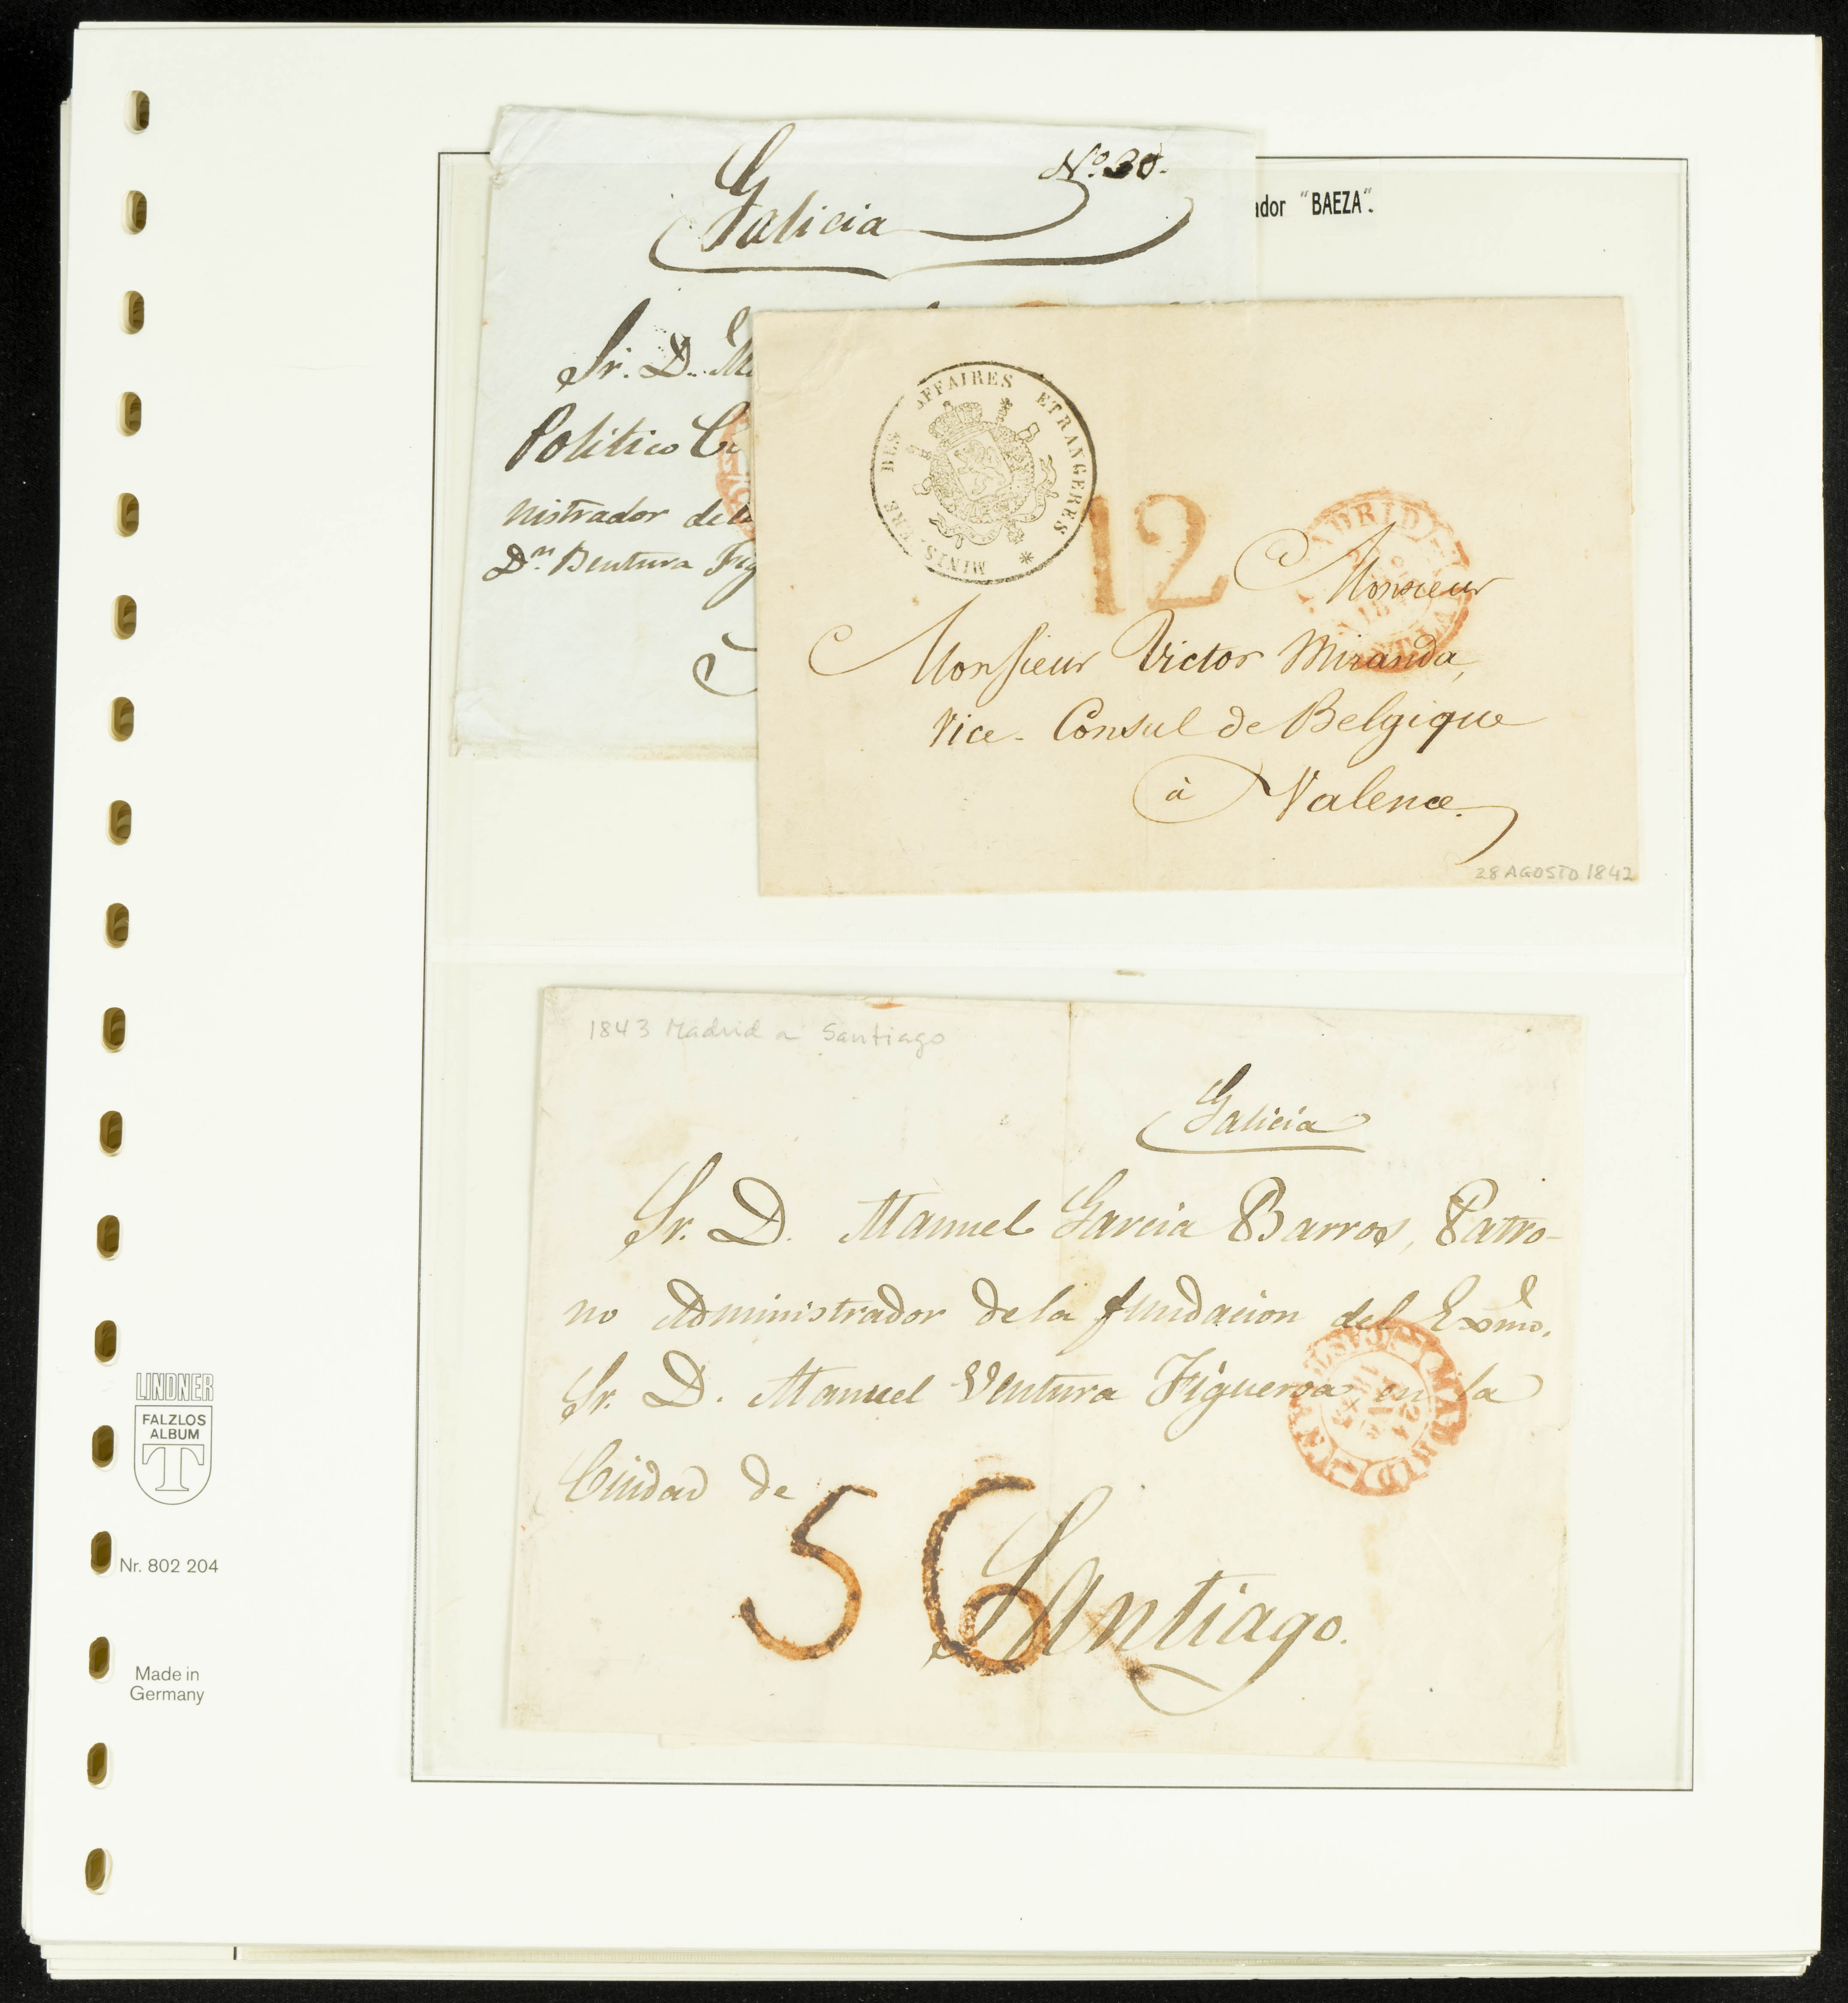 Galicia
Nº 30.
ador "BAEZA".
Sr. D. M
Politico
nistrador de la
Dn. Bentura Fig
MINISTERE DES AFFAIRES ETRANGERES
12
MADRID
Monsieur
Monsieur Victor Miranda,
Vice-Consul de Belgique
à Valence.
28 AGOSTO 1842
1843 Madrid a Santiago
Galicia
Sr. D. Manuel Garcia Barros, Patro-
no Administrador de la fundacion del Exmo.
Sr. D. Manuel Ventura Figueroa en la
Ciudad de
MADRID
56
Santiago.
LINDNER
FALZLOS
ALBUM
T
Nr. 802 204
Made in
Germany